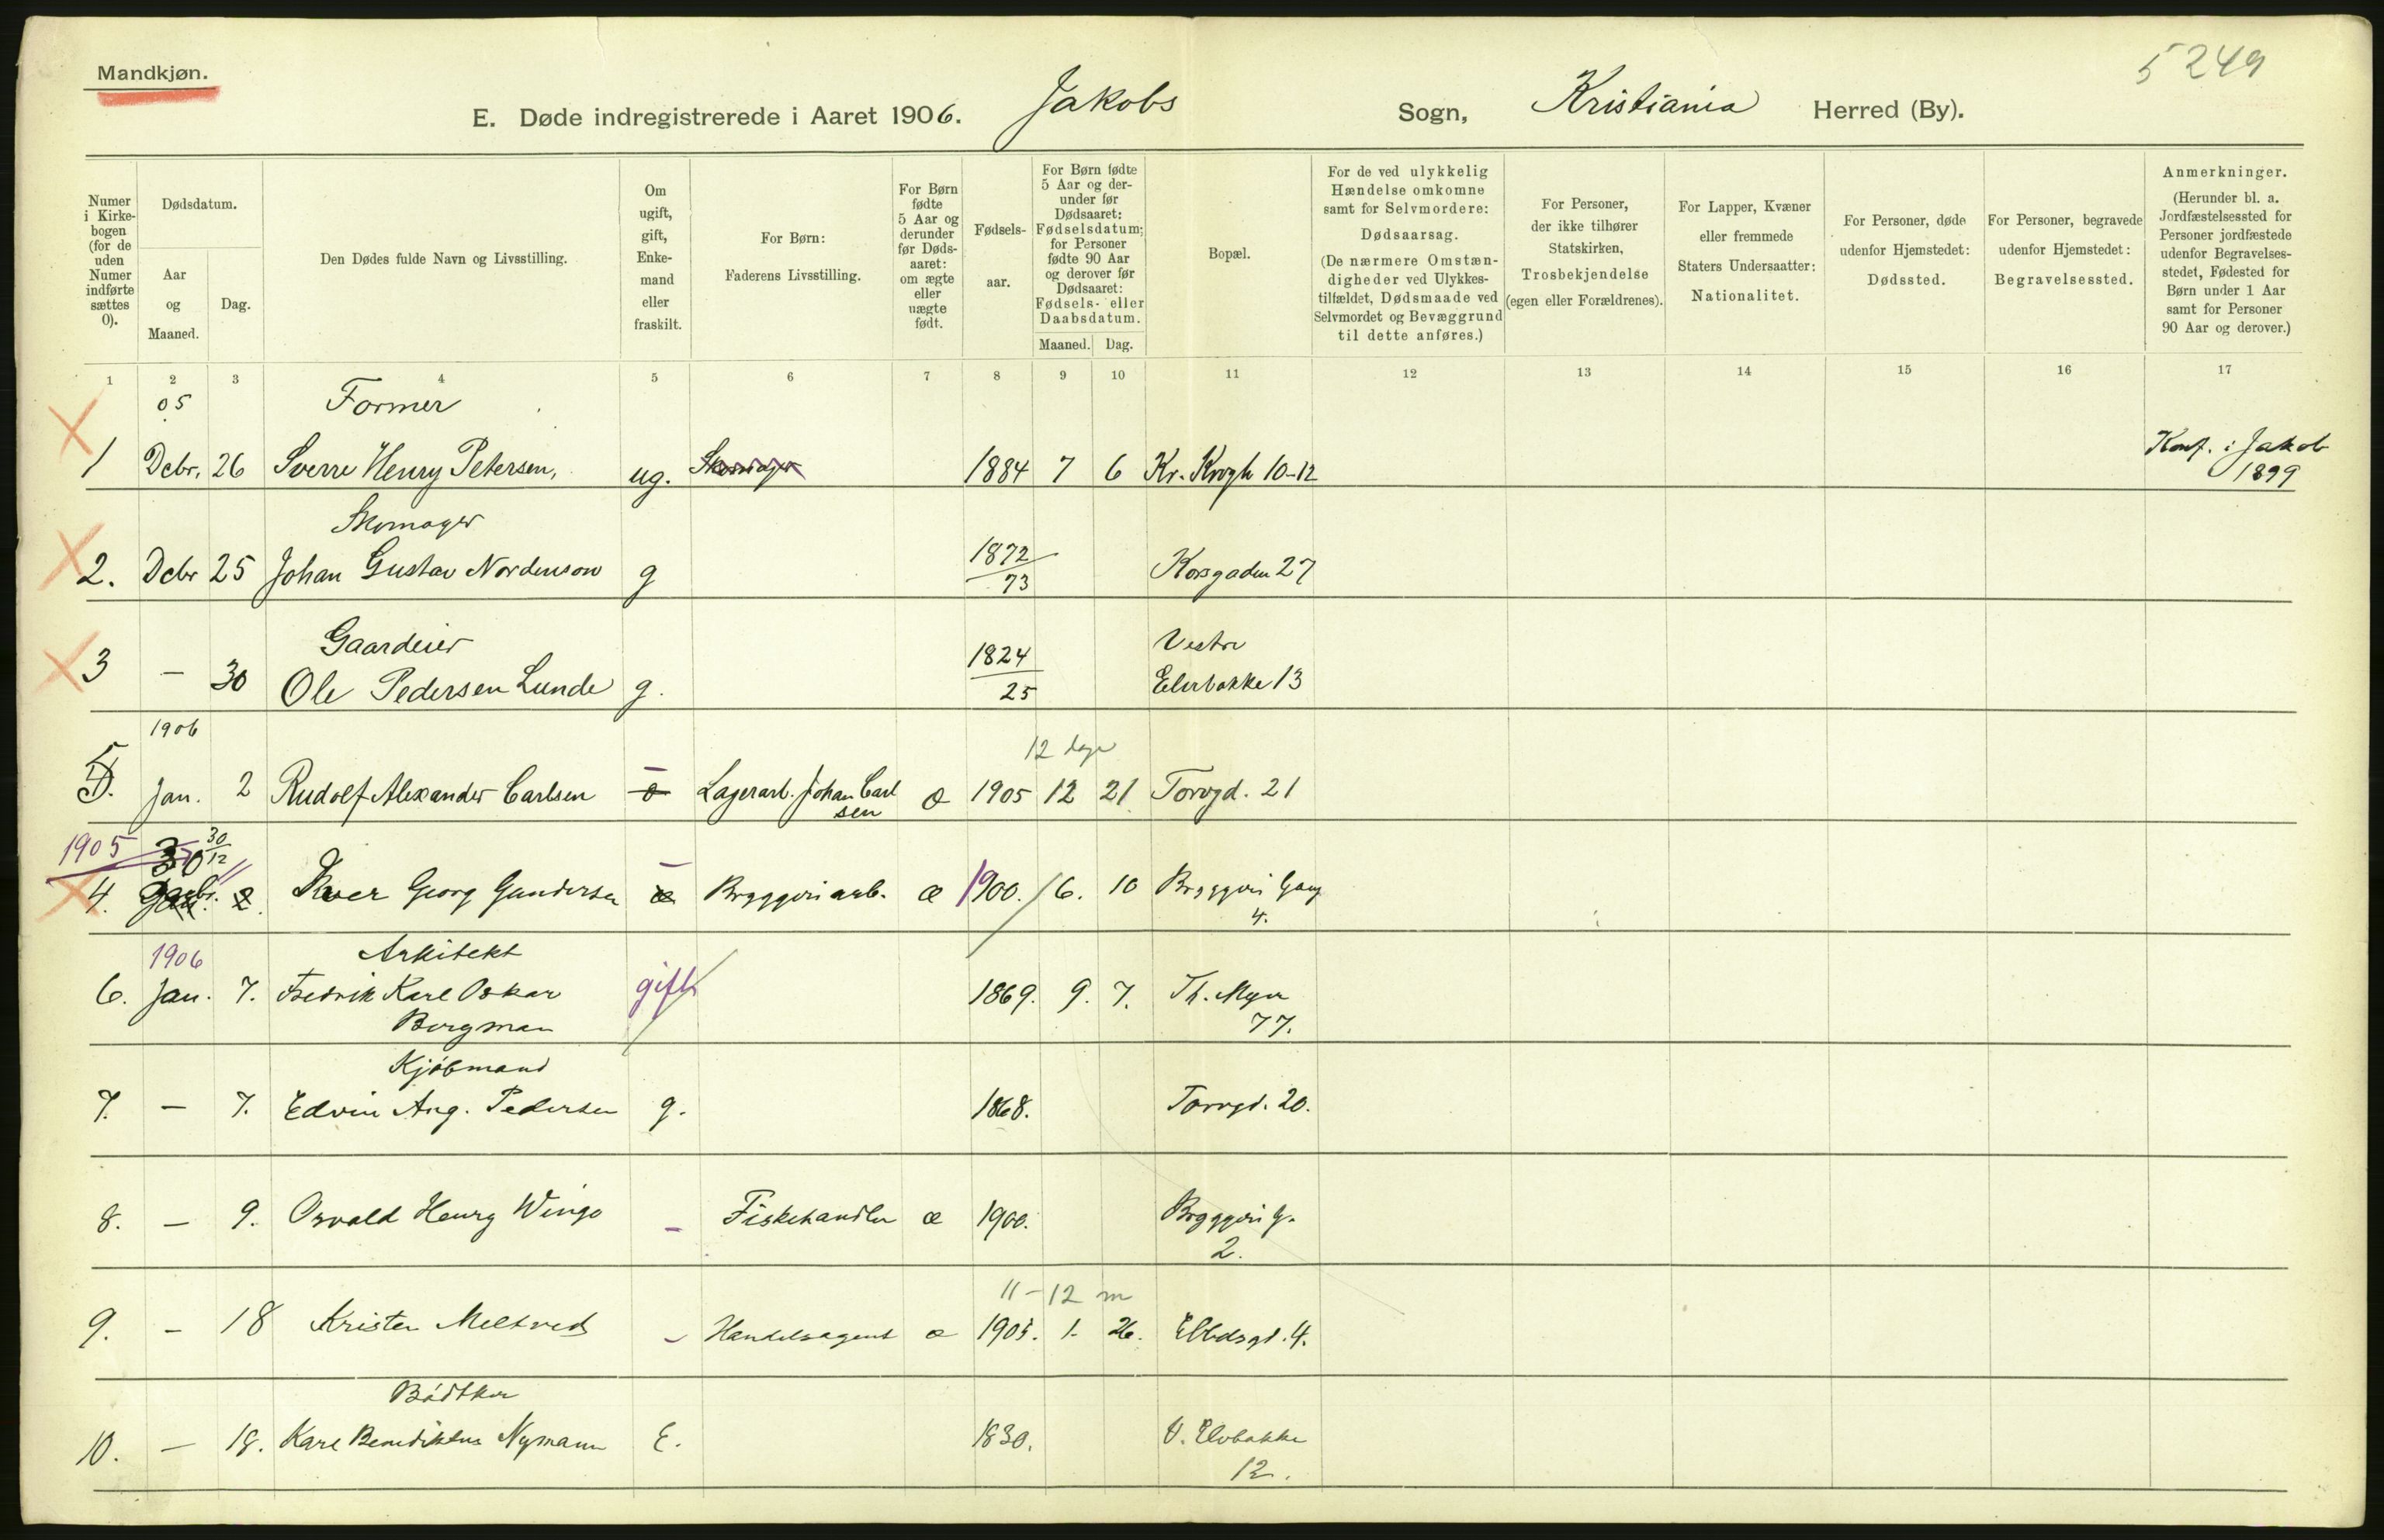 Mandkjøn.
5249
E. Døde indregistrerede i Aaret 1906. Jakobs Sogn, Kristiania Herred (By).
Numer i Kirkebogen (for de uden Numer indførte sættes 0).
Dødsdatum.
Aar og Maaned.
Dag.
Den Dødes fulde Navn og Livsstilling.
Om ugift, gift, Enkemand eller fraskilt.
For Børn:
Faderens Livsstilling.
For Børn fødte 5 Aar og derunder før Dødsaaret: om ægte eller uægte født.
Fødselsaar.
For Børn fødte 5 Aar og derunder før Dødsaaret: Fødselsdatum; for Personer fødte 90 Aar og derover før Dødsaaret: Fødsels- eller Daabsdatum.
Maaned. Dag.
Bopæl.
For de ved ulykkelig Hændelse omkomne samt for Selvmordere: Dødsaarsag. (De nærmere Omstændigheder ved Ulykkestilfældet, Dødsmaade ved Selvmordet og Bevæggrund til dette anføres.)
For Personer, der ikke tilhører Statskirken, Trosbekjendelse (egen eller Forældrenes).
For Lapper, Kvæner eller fremmede Staters Undersaatter: Nationalitet.
For Personer, døde udenfor Hjemstedet: Dødssted.
For Personer, begravede udenfor Hjemstedet: Begravelsessted.
Anmerkninger.
(Herunder bl. a. Jordfæstelsessted for Personer jordfæstede udenfor Begravelsesstedet, Fødested for Børn under 1 Aar samt for Personer 90 Aar og derover.)
1 2 3 4 5 6 7 8 9 10 11 12 13 14 15 16 17
05 Former
1 Dcbr. 26 Sverre Henry Petersen, ug. Skomager 1884 7 6 Kr. Krogh 10-12 Konf. i Jakob 1899
Skomager
2. Dcbr 25 Johan Gustav Nordenson g 1872/73 Korsgaden 27
Gaardeier
3 - 30 Ole Pedersen Lunde g. 1824/25 Vestre Elvebakke 13
1906 12 dage
5. Jan. 2 Rudolf Alexander Carlsen - Lagerarb. Johan Carlsen æ 1905 12 21 Torvgd. 21
1905 30 30/12
4. 2. Iver Georg Gundersen - Bryggeriarb. æ 1900. 6. 10 Bryggeri Gang 4.
1906 Arkitekt
6. Jan. 7. Fredrik Karl Oskar Bergman gift 1869. 9. 7. Th. Myer 77.
Kjöbmand
7. - 7. Edvin Aug. Pedersen g. 1868. Torvgd. 20.
8. - 9. Osvald Henry Winge - Fiskehandler æ 1900. Bryggeri G. 2.
11-12 m
9. - 18 Krister Meltved - Handelsagent æ 1905. 1. 26. 4.
Bödtker
10. - 18. Karl Benediktus Nymann E. 1830. V. Elvbakke 12.